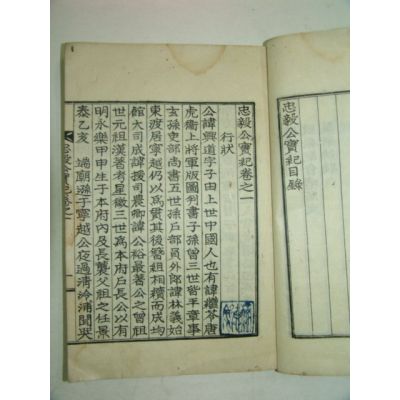 忠毅公實紀目錄
忠毅公實紀卷之一
行狀
公諱興道字子由上世中國人也有諱繼苓唐
虎衛上將軍版圖判書子孫曾三世皆平章事
玄孫吏部尙書五世孫戶部員外郞諱林義始
東渡居寧越仍以爲貫其後簪組相續而成均
館大司成諱援司農卿諱公裕最著公之曾祖
世元祖漢著考星徽三世爲本府戶長公以有
明永樂甲申生于本府內及長襲父祖之任景
泰乙亥 端廟遜于寧越公夜過淸泠浦聞哭
忠毅公實紀卷之一 一